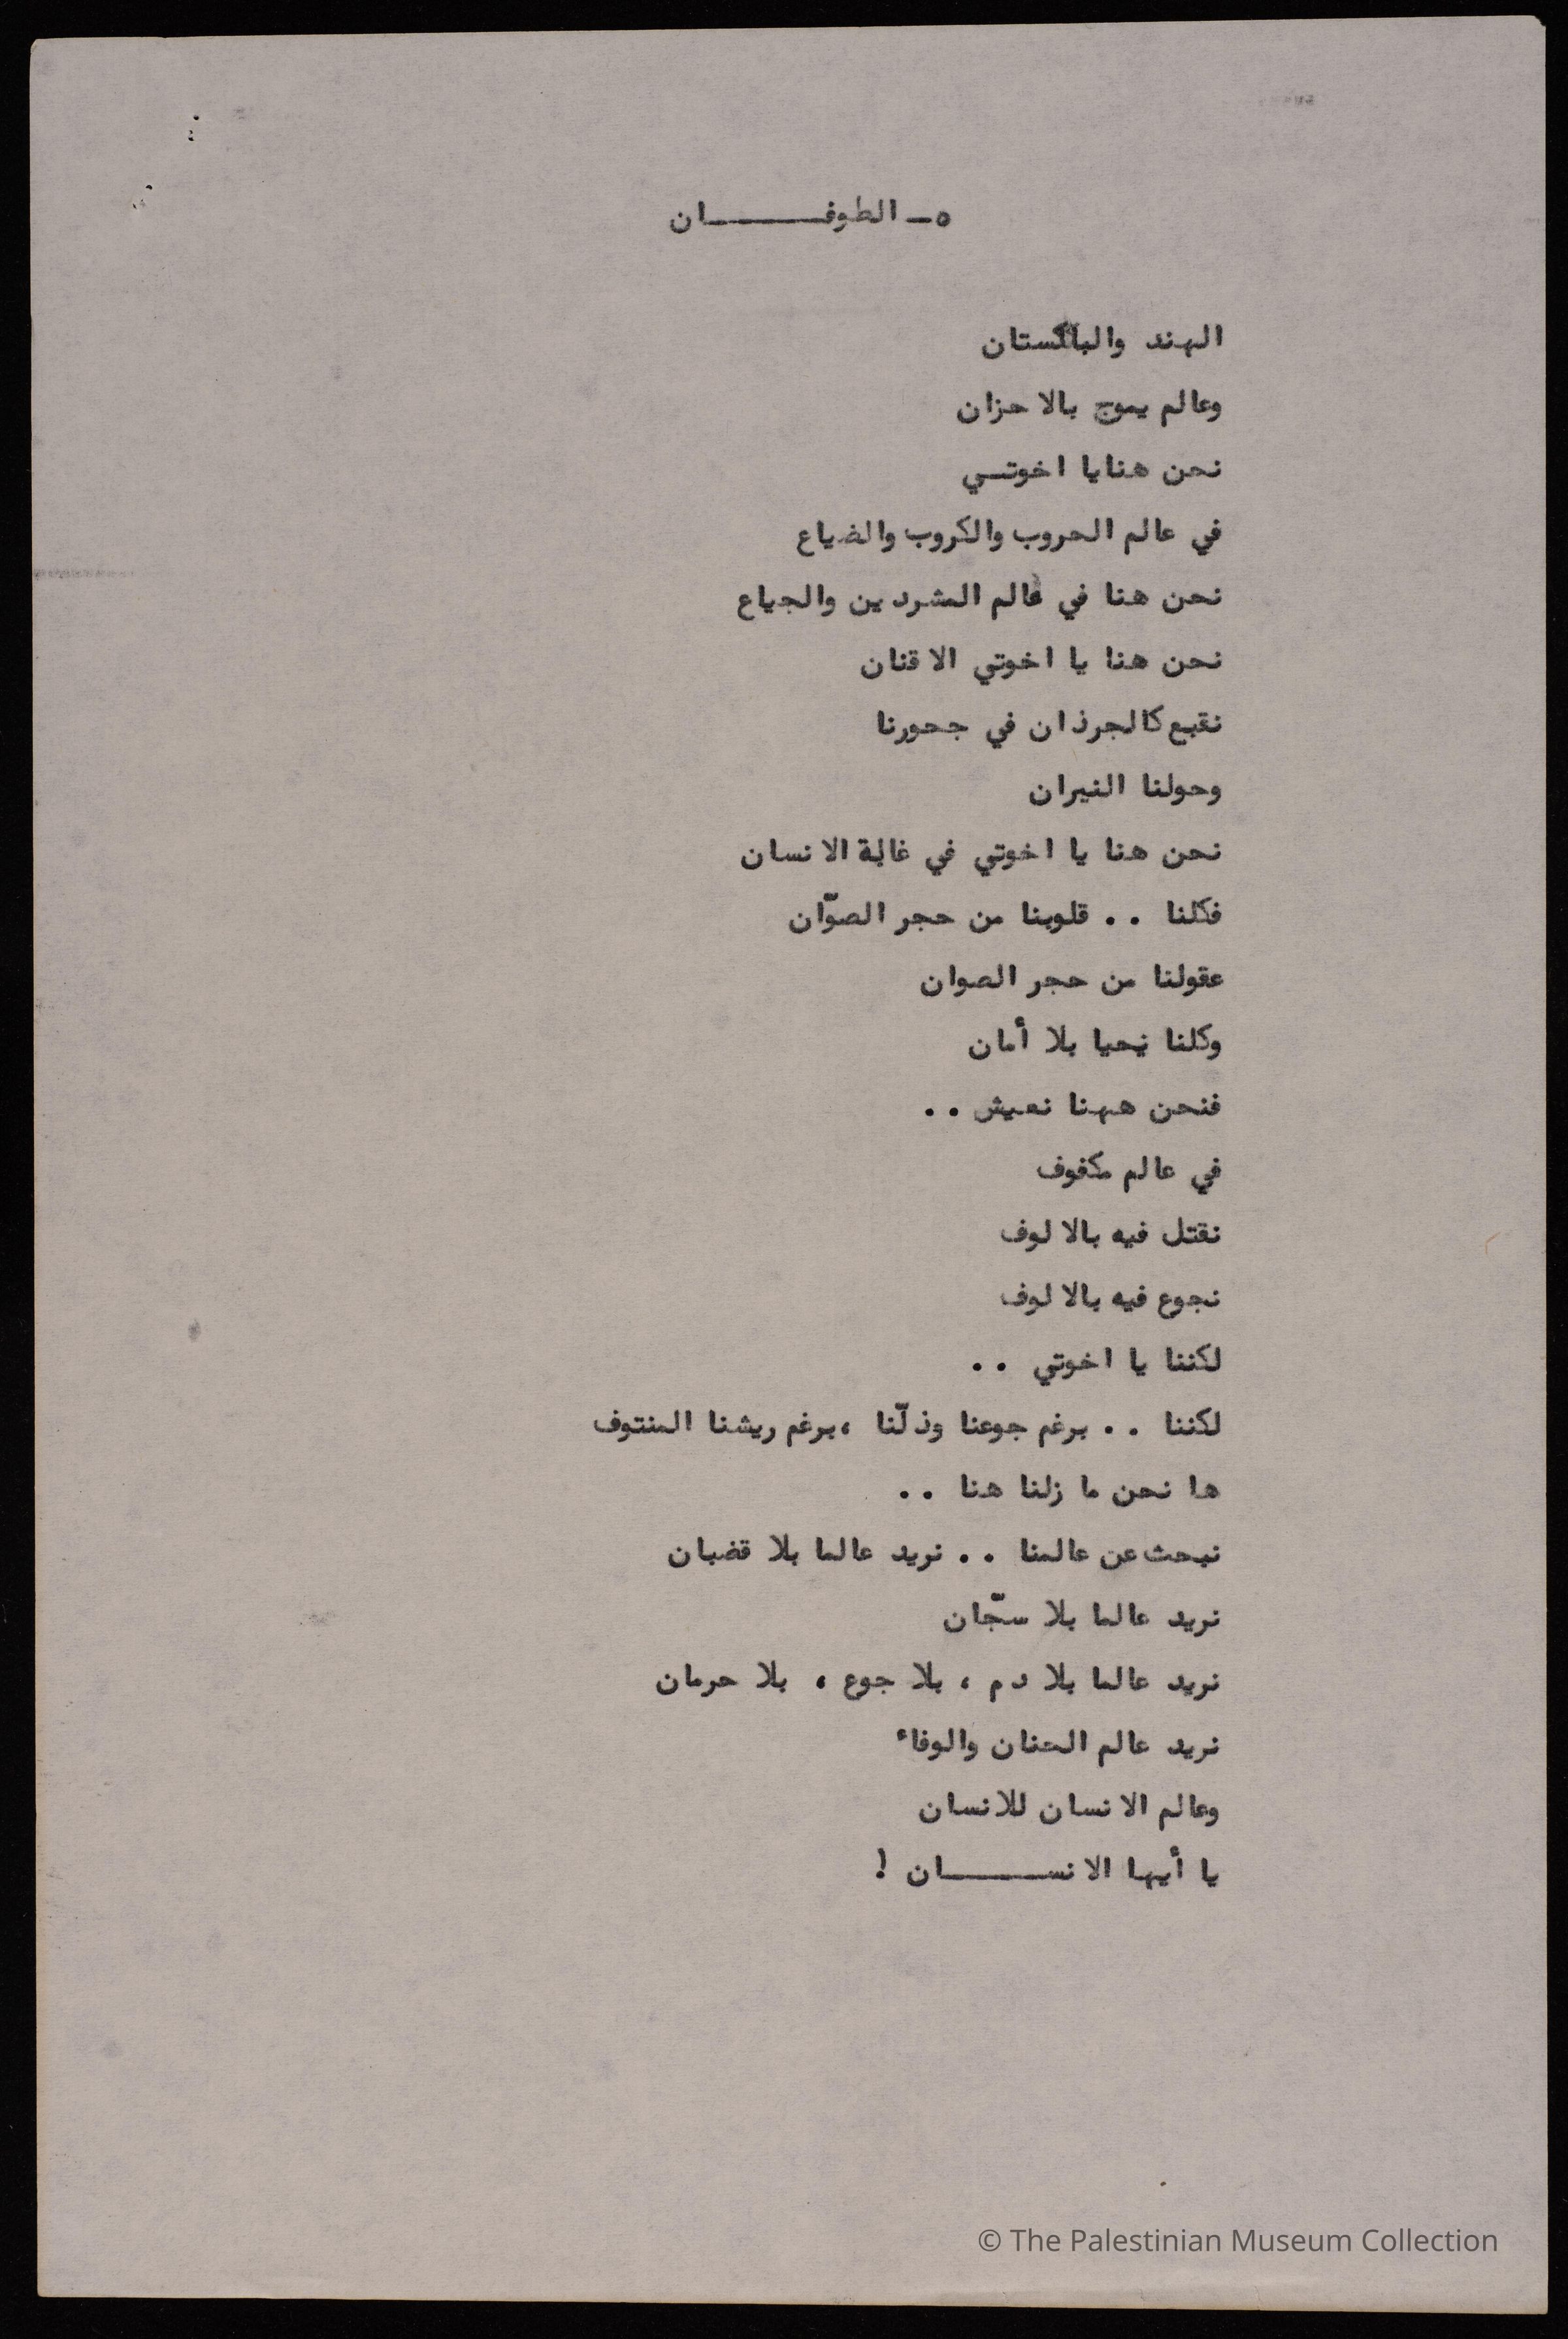 ٥ـ الطوفـــــــان
الهند والباكستان
وعالم يموج بالاحزان
نحن هنايا اخوتـــي
في عالم الحروب والكروب والضياع
نحن هنا في عالم المشردين والجياع
نحن هنا يا اخوتي الاقنان
نقبع كالجرذان في جحورنا
وحولنا النيران
نحن هنا يا اخوتي في غابة الانسان
فكلنا .. قلوبنا من حجر الصوّان
عقولنا من حجر الصوان
وكلنا نحيا بلا أمان
فنحن ههنا نعيش ..
في عالم مكفوف
نقتل فيه بالالوف
نجوع فيه بالالوف
لكننا يا اخوتي ..
لكننا .. برغم جوعنا وذلّنا ،برغم ريشنا المنتوف
ها نحن ما زلنا هنا ..
نبحث عن عالمنا .. نريد عالما بلا قضبان
نريد عالما بلا سجّان
نريد عالما بلا دم ، بلا جوع ، بلا حرمان
نريد عالم الحنان والوفاء
وعالم الانسان للانسان
يا أيها الانســـــــان !
© The Palestinian Museum Collection